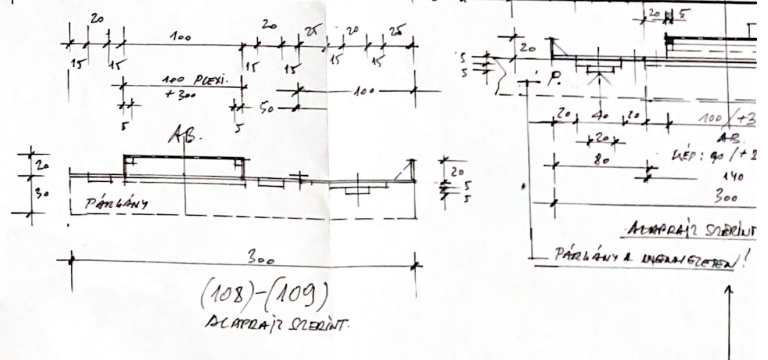 20 100 20 25 20 25
15 15 15 15 15 15
100 PLEXI.
+300
100
5 5 50
AB.
20
30
20
5
5
PÁRKÁNY
300
(108)-(109)
ALAPRAJZ SZERINT.
20 5
20
5
5
P.
20 40 20 100/+3
20 AB.
80
140
300
ALAPRAJZ SZERINT
PÁRKÁNY A